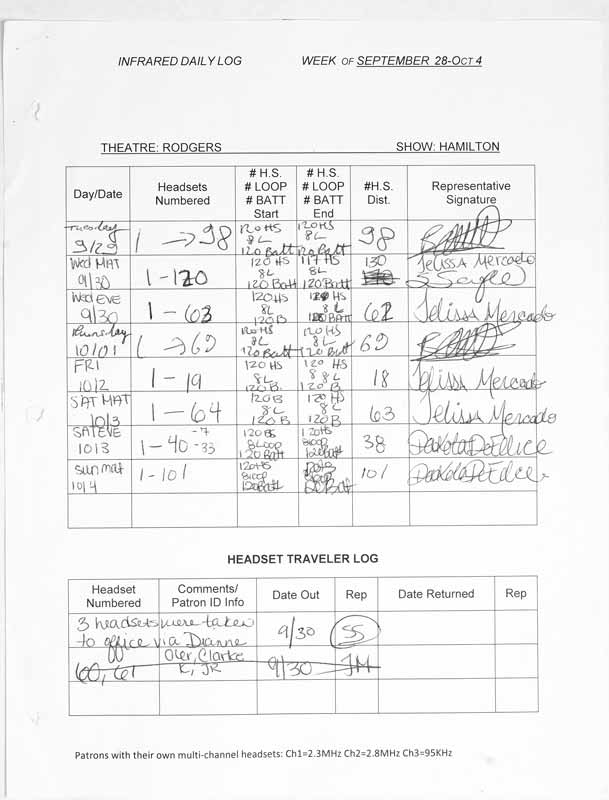 INFRARED DAILY LOG WEEK OF SEPTEMBER 28-OCT 4
THEATRE: RODGERS SHOW: HAMILTON
Day/Date Headsets Numbered # H.S. # LOOP # BATT Start # H.S. # LOOP # BATT End #H.S. Dist. Representative Signature
Tuesday 9/29 1 → 98 120 HS 8L 120 Batt 120 HS 8L 120 Batt 98
Wed MAT 9/30 1-120 120 HS 8L 120 Batt 117 HS 8L 120 Batt 130 Jelissa Mercado
Wed EVE 9/30 1-63 120HS 8L 120B HS 8L Batt 62 Jelissa Mercado
Thursday 10/01 1 → 69 120 HS 8L 120 Batt 120 HS 8L 120 Batt 69
FRI 10/2 1-19 120 HS 8L 120 B. 120 HS 8L 120 B. 18 Jelissa Mercado
SAT MAT 10/3 1-64 120B 8L 120 B 120 HS 8L 120B 63 Jelissa Mercado
SAT EVE 10/3 1-40 -7 -33 8LOOP 120 Batt 120HS 8loop 120Batt 38
sun mat 10/4 1-101 120HS 8loop 120Batt 101
HEADSET TRAVELER LOG
Headset Numbered Comments/ Patron ID Info Date Out Rep Date Returned Rep
3 headsets were taken
to office via Dianne 9/30 SS
Oler, Clarke
60, 61 K, JR 9/30 JM
Patrons with their own multi-channel headsets: Ch1=2.3MHz Ch2=2.8MHz Ch3=95KHz